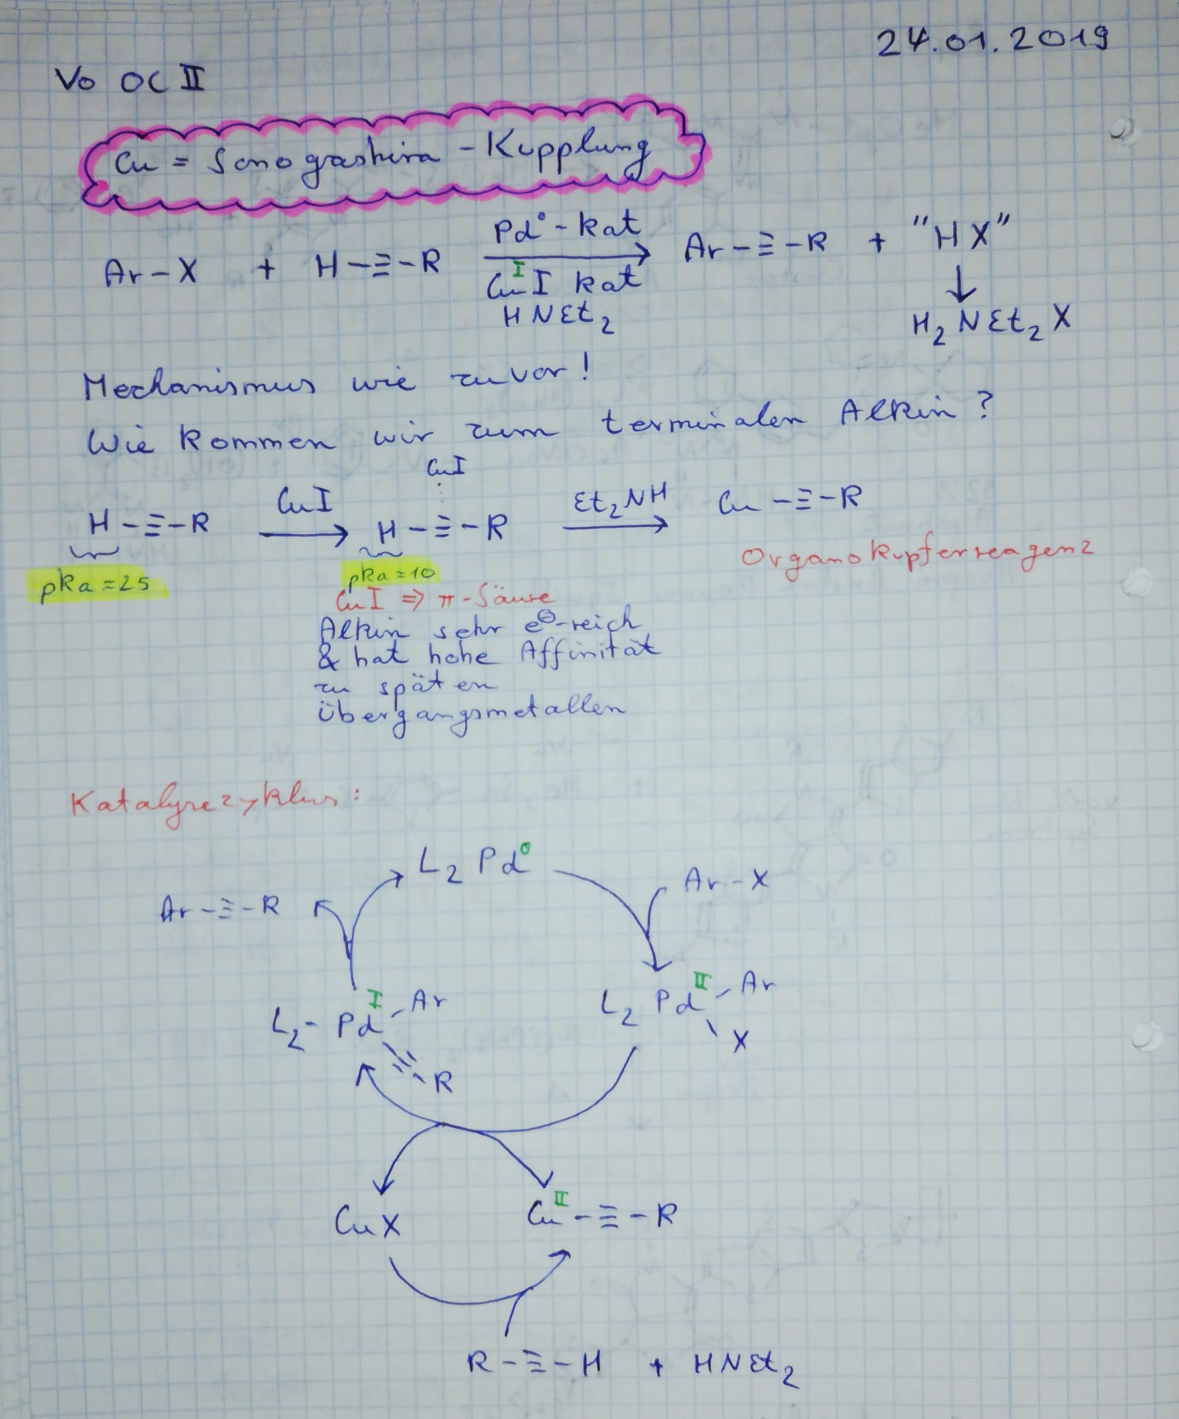 24.01.2019
Vo OC II
Cu = Sonogashira - Kupplung
Ar-X + H-≡-R Pd⁰-kat Ar-≡-R + "HX"
Cu^I I kat
HNEt₂ H₂NEt₂X
Mechanismus wie zuvor!
Wie kommen wir zum terminalen Alkin?
CuI
H-≡-R CuI H-≡-R Et₂NH Cu-≡-R
Organokupferreagenz
pKa=25 pKa=10
CuI ⇒ π-Säure
Alkin sehr e⊖-reich
& hat hohe Affinität
zu späten
Übergangsmetallen
Katalysezyklus:
L₂Pd⁰
Ar-X
Ar-≡-R
L₂-Pd^I-Ar L₂Pd^II-Ar
≡-R X
CuX Cu^II-≡-R
R-≡-H + HNEt₂